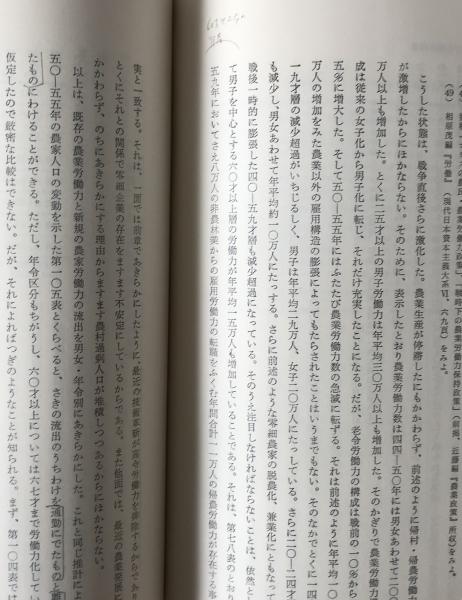 (49) 相原茂編『労働』(『現代日本資本主義大系Ⅵ、六九頁)をみよ。
こうした状態は、戦争直後さらに激化した。農業生産が停滞したにもかかわらず、前述のように帰村・帰農労働
が激増したからにほかならない。そのために、表示したとおり農業労働力数は四四―五〇年には男女あわせて二〇〇
万人以上も増加した。とくに二五才以上の男子労働力は年平均三〇万人以上も増加した。そのかぎりで農業労働力
成は従来の女子化から男子化に転じ、それだけ充実したことになる。だが、老令労働力の構成は戦前の一〇%から
五%に増大した。そして五〇―五五年にはふたたび農業労働力数の急減に転ずる。それは前述のように年平均一〇
万人の増加をみた農業以外の雇用構造の膨張によってもたらされたことはいうまでもない。そのなかでとくに一四
一九才層の減少超過がいちじるしく、男子は年平均二九万人、女子二〇万人にたっしている。さらに二〇―二四才
も減少し、男女あわせて年平均約一〇〇万人にたっする。さらに前述のような零細農家の脱農化、兼業化にともなっ
戦後一時的に膨張した四〇―五九才層も減少超過になっている。そのうえ注目しなければならないことは、依然と
て男子を中心とする六〇才以上層の労働力が年平均一五万人も増加していることである。それは、第七八表のとおり
五九年においてさえ八万人の非農林業からの雇用労働力の転職をふくむ年間合計一一万人の帰農労働力が存在する事
実と一致する。それは、一面では前章であきらかにしたように、最近の技術革新が老令労働力を排除するからであり
とくにそれとの関係で零細企業の存在をますます不安定にしているからである。また他面では、最近の農業発展に
かかわらず、のちにあきらかにする理由からますます農村過剰人口が堆積しつつあるからにほかならない。
以上は、既存の農業労働力と新規の農家労働力の流出を男女・年令別にあきらかにした。これと同じ推計によ
五〇―五五年の農家人口の変動を示した第一〇五表とくらべると、さきの流出のうちわけを通勤にでたものと
たものにわけることができる。ただし、年令区分もちがうし、六〇才以上については六七才まで労働力化してい
仮定したので厳密な比較はできない。だが、それによればつぎのようなことが知られる。まず、第一〇四表では